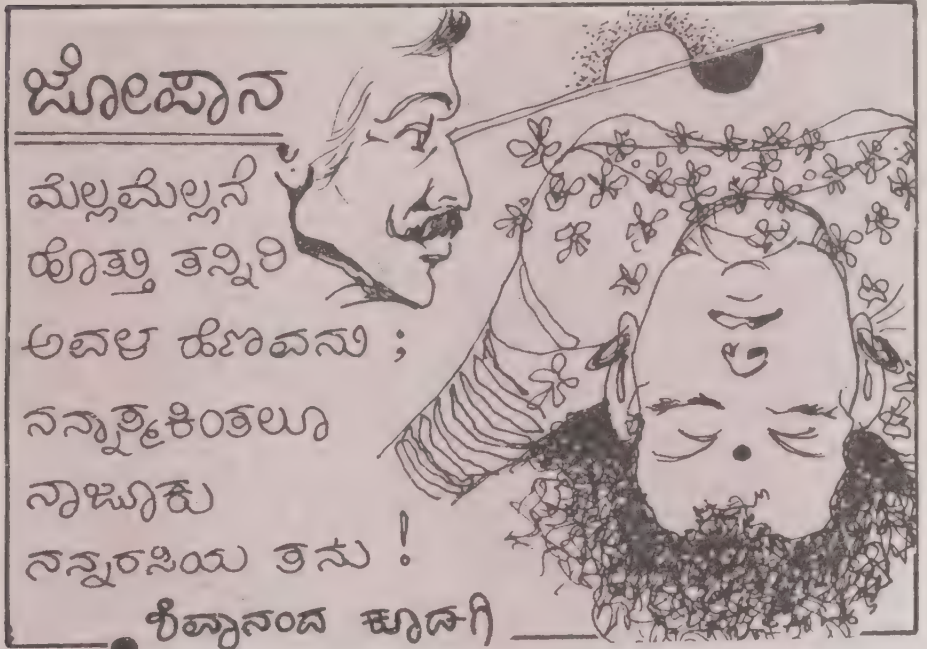 ಜೋಪಾನ
ಮೆಲ್ಲಮೆಲ್ಲನೆ
ಹೊತ್ತು ತನ್ನಿರಿ
ಅವಳ ಹೆಣವನು ;
ನನ್ನಾತ್ಮಕಿಂತಲೂ
ನಾಜೂಕು
ನನ್ನರಸಿಯ ತನು !
ಶಿವಾನಂದ ಕೂಡಗಿ